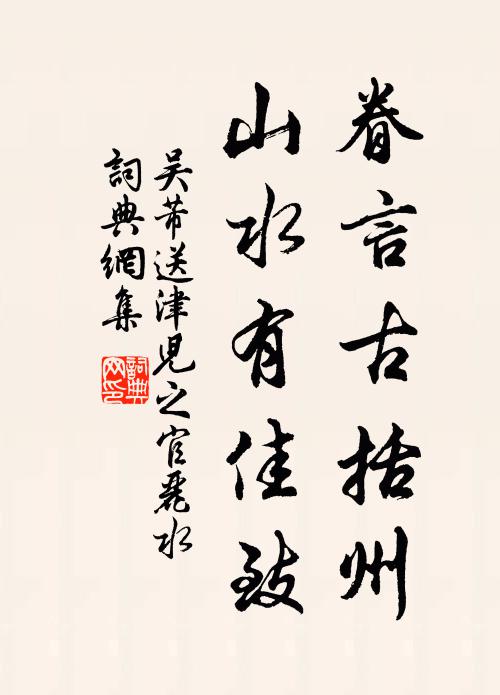 眷言古括州
山水有佳致
吴芾送津児之官麗水
詞典網集
詞典
网印